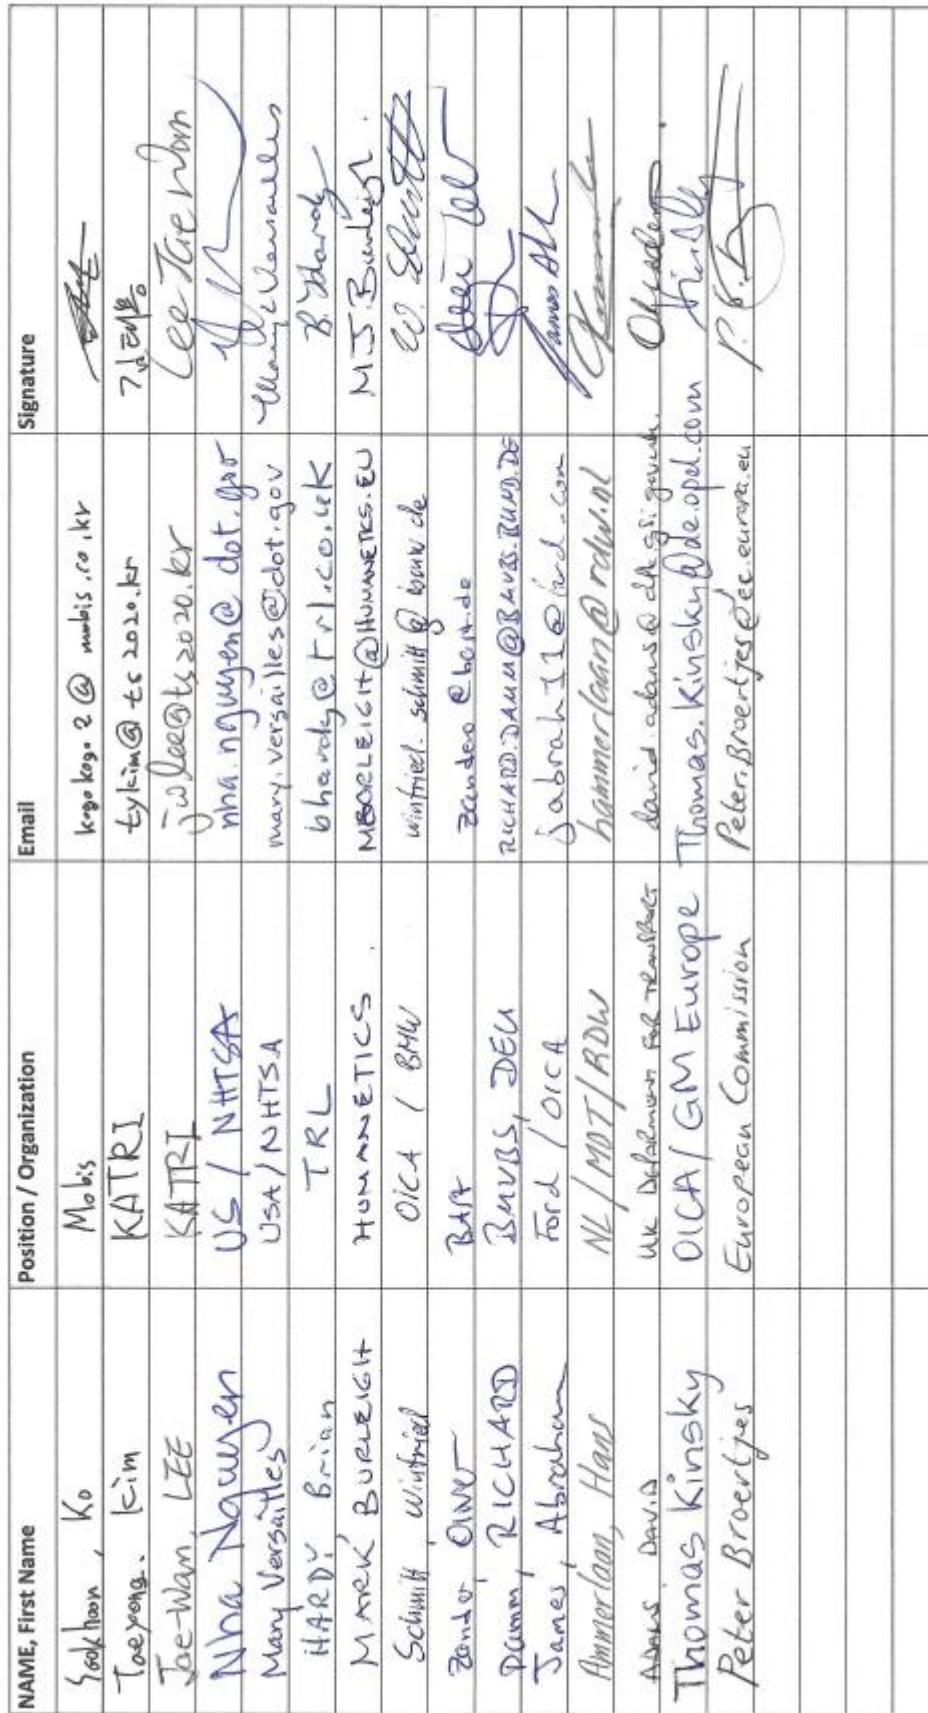 NAME, First Name Position / Organization Email Signature
Seokhoon, Ko Mobis kogokogo2@mobis.co.kr
Taeyong. Kim KATRI tykim@ts2020.kr 김태용
Jae-Wan, LEE KATRI jwlee@ts2020.kr Lee Jae Wan
Nha Nguyen US / NHTSA nha.nguyen@dot.gov
Mary Versailles USA/NHTSA mary.versailles@dot.gov Mary Versailles
HARDY Brian TRL bhardy@trl.co.uk B. Hardy
MARK BURLEIGH HUMANETICS MBURLEIGH@HUMANETICS.EU M.J.Burleigh.
Schmitt, Winfried OICA / BMW winfried.schmitt@bmw.de W. Schmitt
Zander, Oliver BASt zander@bast.de
Damm, RICHARD BMVBS, DEU RICHARD.DAMM@BMVBS.BUND.DE
James, Abraham Ford / OICA jabrah11@ford.com James Ah
Ammerlaan, Hans NL/MOT/RDW hammerlaan@rdw.nl
ADAMS DAVID UK DEPARTMENT FOR TRANSPORT
Thomas Kinsky OICA/GM Europe Thomas.Kinsky@de.opel.com Kinsky
Peter Broertjes European Commission Peter.Broertjes@ec.europa.eu P. B.